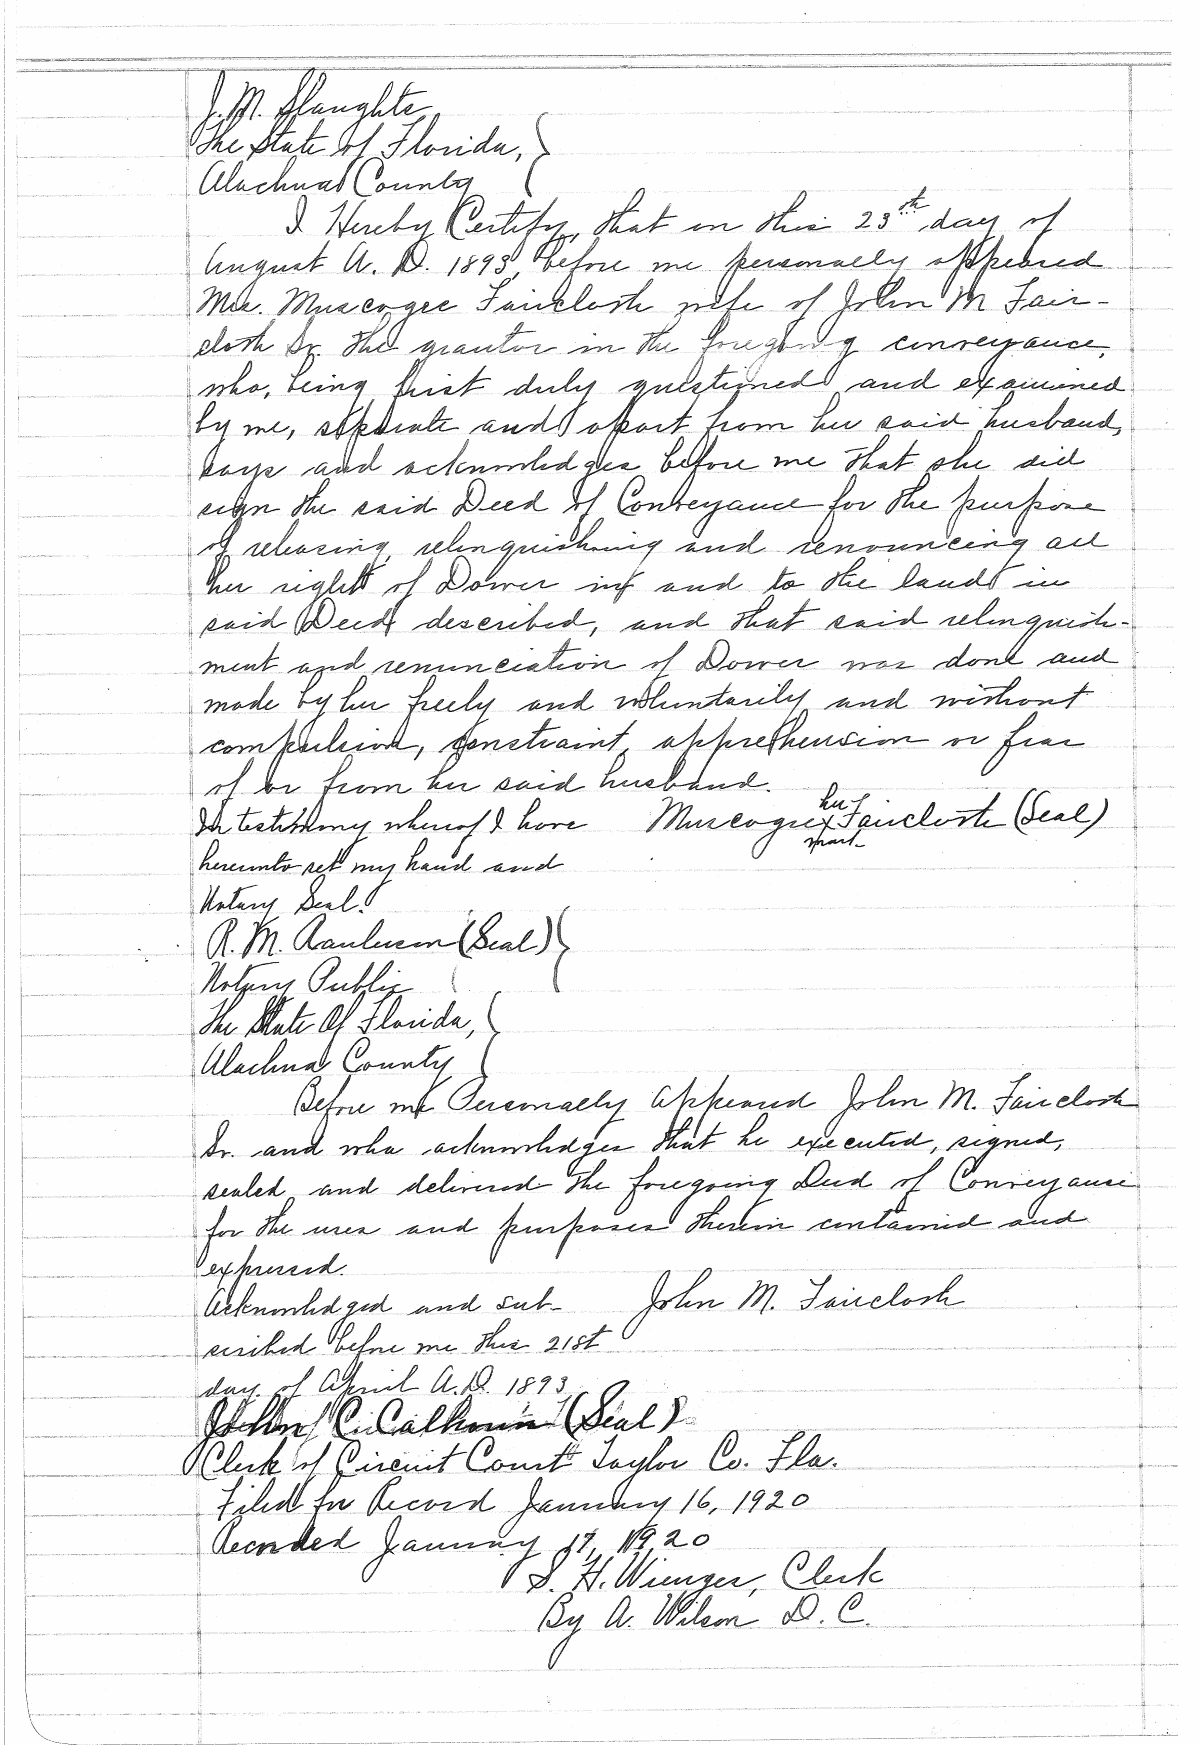 J. M. Slaughte
The State of Florida,
Alachua County
I Hereby Certify, that on this 23th day of
August A. D. 1893, before me personally appeared
Mrs. Muscogee Faircloth wife of John M Fair-
cloth Sr. the grantor in the foregoing conveyance,
who, being first duly questioned and examined
by me, separate and apart from her said husband,
says and acknowledges before me that she did
sign the said Deed of Conveyance for the purpose
of releasing, relinquishing and renouncing all
her right of Dower in and to the lands in
said Deed described, and that said relinquish-
ment and renunciation of Dower was done and
made by her freely and voluntarily and without
compulsion, constraint, apprehension or fear
of or from her said husband.
In testimony whereof I have Muscogee her x mark Faircloth (Seal)
hereunto set my hand and
Notary Seal.
R. M. Raulerson (Seal)
Notary Public
The State Of Florida,
Alachua County
Before me Personally Appeared John M. Faircloth
Sr. and who acknowledges that he executed, signed,
sealed and delivered the foregoing Deed of Conveyance
for the uses and purposes therein contained and
expressed.
Acknowledged and sub- John M. Faircloth
scribed before me this 21st
day of April A. D. 1893
John C. Calhoun (Seal)
Clerk of Circuit Court Taylor Co. Fla.
Filed for Record January 16, 1920
Recorded January 17, 1920
S. H. Wienges, Clerk
By A. Wilson D. C.